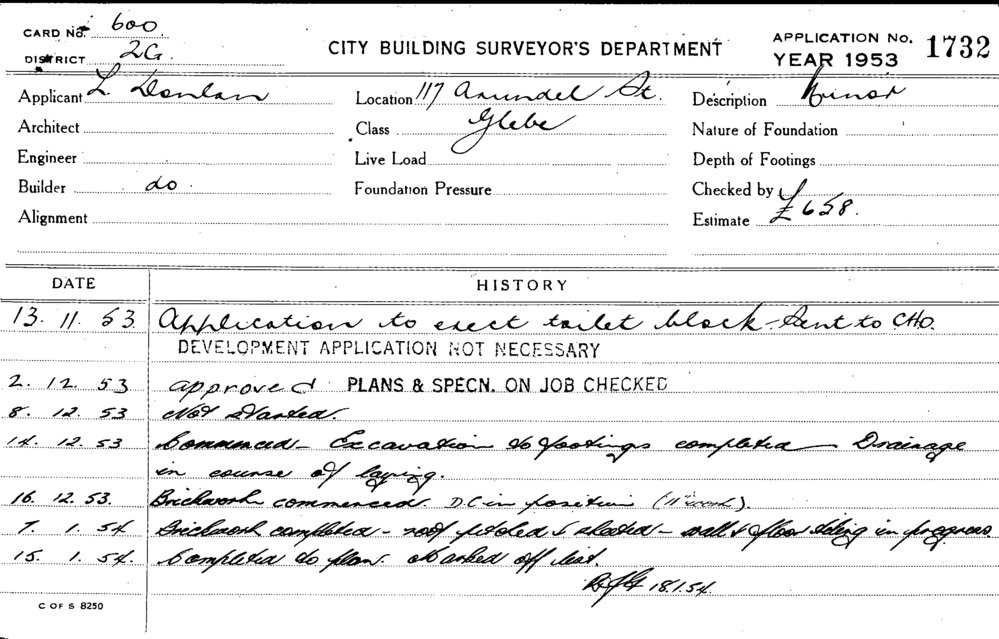 CARD No. 600.
DISTRICT 2G.
CITY BUILDING SURVEYOR'S DEPARTMENT
APPLICATION No. 1732
YEAR 1953
Applicant L. Donlan Location 117 Arundel St. Description Minor
Architect Class Glebe Nature of Foundation
Engineer Live Load Depth of Footings
Builder do. Foundation Pressure Checked by
Alignment Estimate £658.
DATE HISTORY
13. 11. 53 Application to erect toilet block - Sent to CHO.
DEVELOPMENT APPLICATION NOT NECESSARY
2. 12. 53 approved PLANS & SPECN. ON JOB CHECKED
8. 12. 53 Not Started.
14. 12. 53 Commenced - Excavation to footings completed - Drainage
in course of laying.
16. 12. 53. Brickwork commenced. D.C in position (11" work).
7. 1. 54 Brickwork completed - roof pitched & sheeted - wall & floor tiling in progress.
15. 1. 54. Completed to plan. Marked off list.
18.1.54.
C OF S 8250